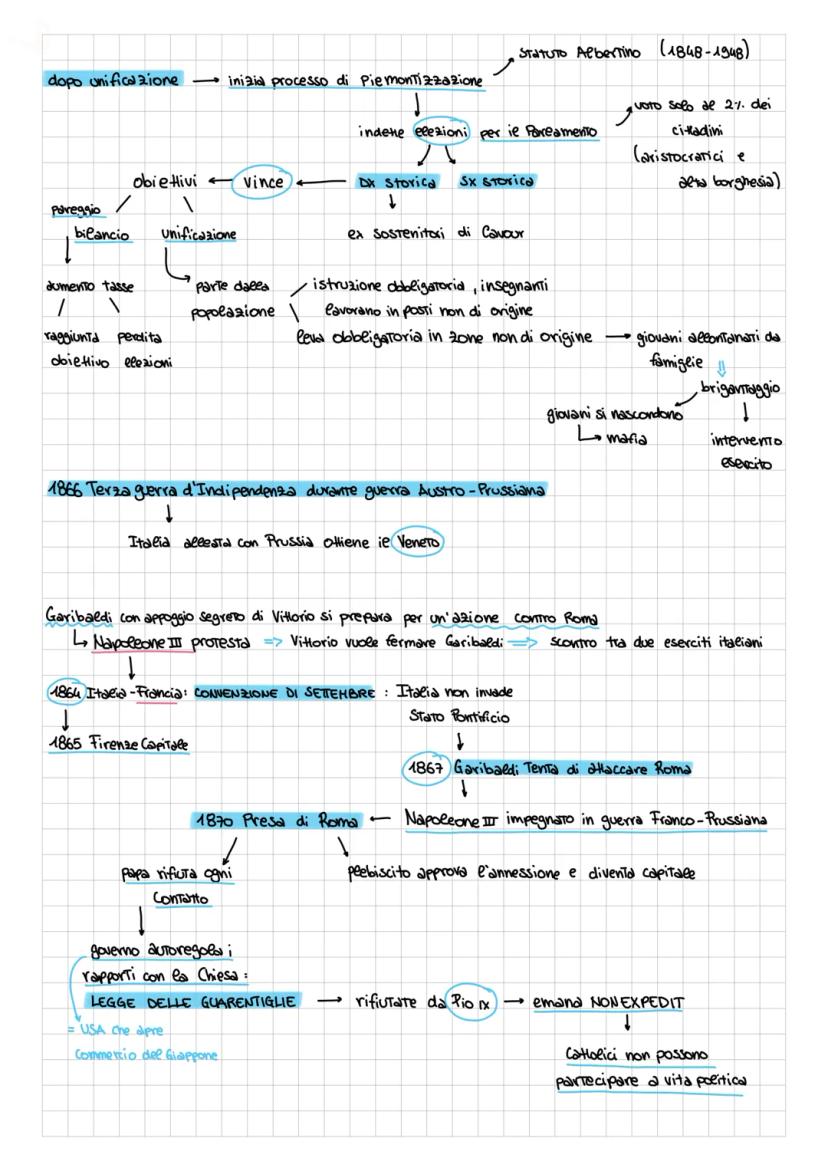 STATUTO Albertino (1848-1948)
dopo unificazione → inizia processo di Piemontizzazione
voto solo al 2% dei
indette elezioni per il Parlamento
cittadini
(aristocratici e
obiettivi ← vince ← DX STORICA SX STORICA
alta borghesia)
pareggio
bilancio unificazione
ex sostenitori di Cavour
aumento tasse
parte dalla
istruzione obbligatoria, insegnanti
popolazione
lavorano in posti non di origine
raggiunta perdita
leva obbligatoria in zone non di origine → giovani allontanati da
obiettivo elezioni
famiglie ⇓
brigantaggio
giovani si nascondono
mafia
intervento
esercito
1866 Terza guerra d'Indipendenza durante guerra Austro-Prussiana
Italia alleata con Prussia ottiene il Veneto
Garibaldi con appoggio segreto di Vittorio si prepara per un'azione contro Roma
↳ Napoleone III protesta => Vittorio vuole fermare Garibaldi => scontro tra due eserciti italiani
1864 Italia-Francia: CONVENZIONE DI SETTEMBRE : Italia non invade
Stato Pontificio
1865 Firenze Capitale
1867 Garibaldi Tenta di attaccare Roma
1870 Presa di Roma ← Napoleone III impegnato in guerra Franco-Prussiana
papa rifiuta ogni
contatto
plebiscito approva l'annessione e diventa capitale
governo autoregola i
rapporti con la Chiesa:
LEGGE DELLE GUARENTIGLIE → rifiutate da Pio IX → emana NON EXPEDIT
= USA che apre
commercio del Giappone
Cattolici non possono
partecipare a vita politica